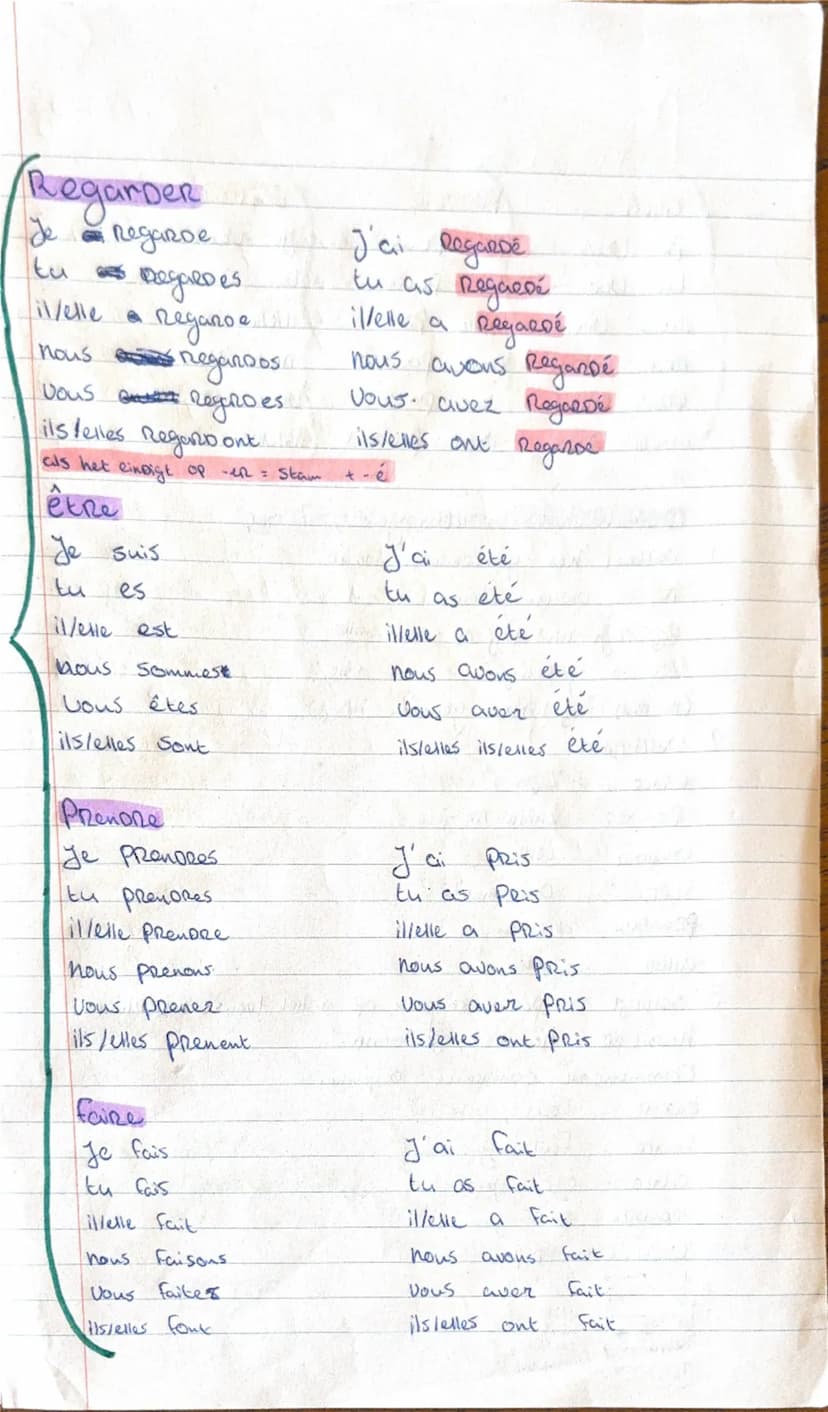 Regarder
Je Regarde J'ai Regardé
tu Regardes tu as Regardé
il/elle Regarde il/elle a Regardé
nous Regardos nous avons Regardé
Vous Regrdes Vous avez Regardé
ils/elles Regardont ils/elles ont Regardé
als het eindigt op -er = Stam + -é
être
Je suis J'ai été
tu es tu as été
il/elle est il/elle a été
nous sommes nous avons été
Vous êtes Vous avez été
ils/elles sont ils/elles ils/elles été
Prendre
Je Prendres J'ai Pris
tu prendres tu as Pris
il/elle prendre il/elle a Pris
nous prenons nous avons Pris
Vous prenez Vous avez Pris
ils/elles prenent ils/elles ont Pris
faire
Je fais J'ai fait
tu fais tu as fait
il/elle fait il/elle a fait
nous faisons nous avons fait
Vous faites Vous avez fait
ils/elles font ils/elles ont fait